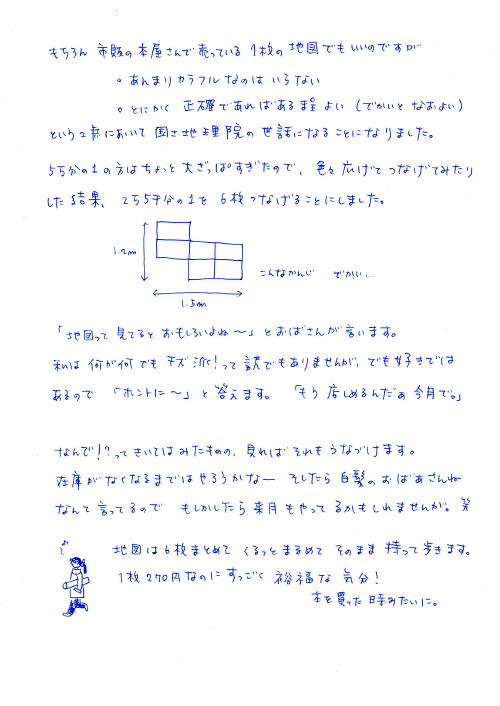 もちろん 市販の本屋さんで売っている 1枚の地図でもいいのですが
。あんまりカラフルなのはいらない
。とにかく 正確であればある程よい (でかいとなおよい)
という2点において 国土地理院の世話になることになりました。
5万分の1の方はちょっと大ざっぱすぎたので、色々広げてつなげてみたり
した結果、2万5千分の1を 6枚つなげることにしました。
1.2m
こんなかんじ でかい…
1.5m
「地図って見てるとおもしろいよね〜」とおばさんが言います。
私は何が何でもチズ派!って訳でもありませんが、でも好きでは
あるので 「ホントに〜」と答えます。 「もう店しめるんだぁ今月で。」
なんで!?ってきいてはみたものの、見ればそれもうなづけます。
在庫がなくなるまではやろうかなー そしたら白髪のおばあさんね
なんて言ってるので もしかしたら来月もやってるかもしれませんが。笑
地図は6枚まとめて くるっとまるめて そのまま持って歩きます。
1枚270円なのにすっごく 裕福な気分!
本を買った時みたいに。